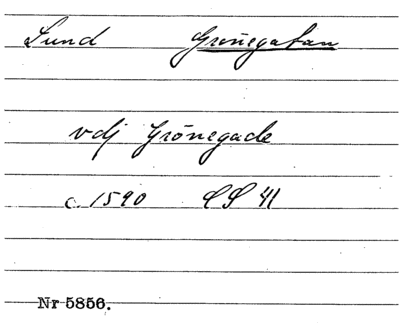 Lund Grönegatan
vdj Grönegade
c. 1590 CS 41
Nr 5856.